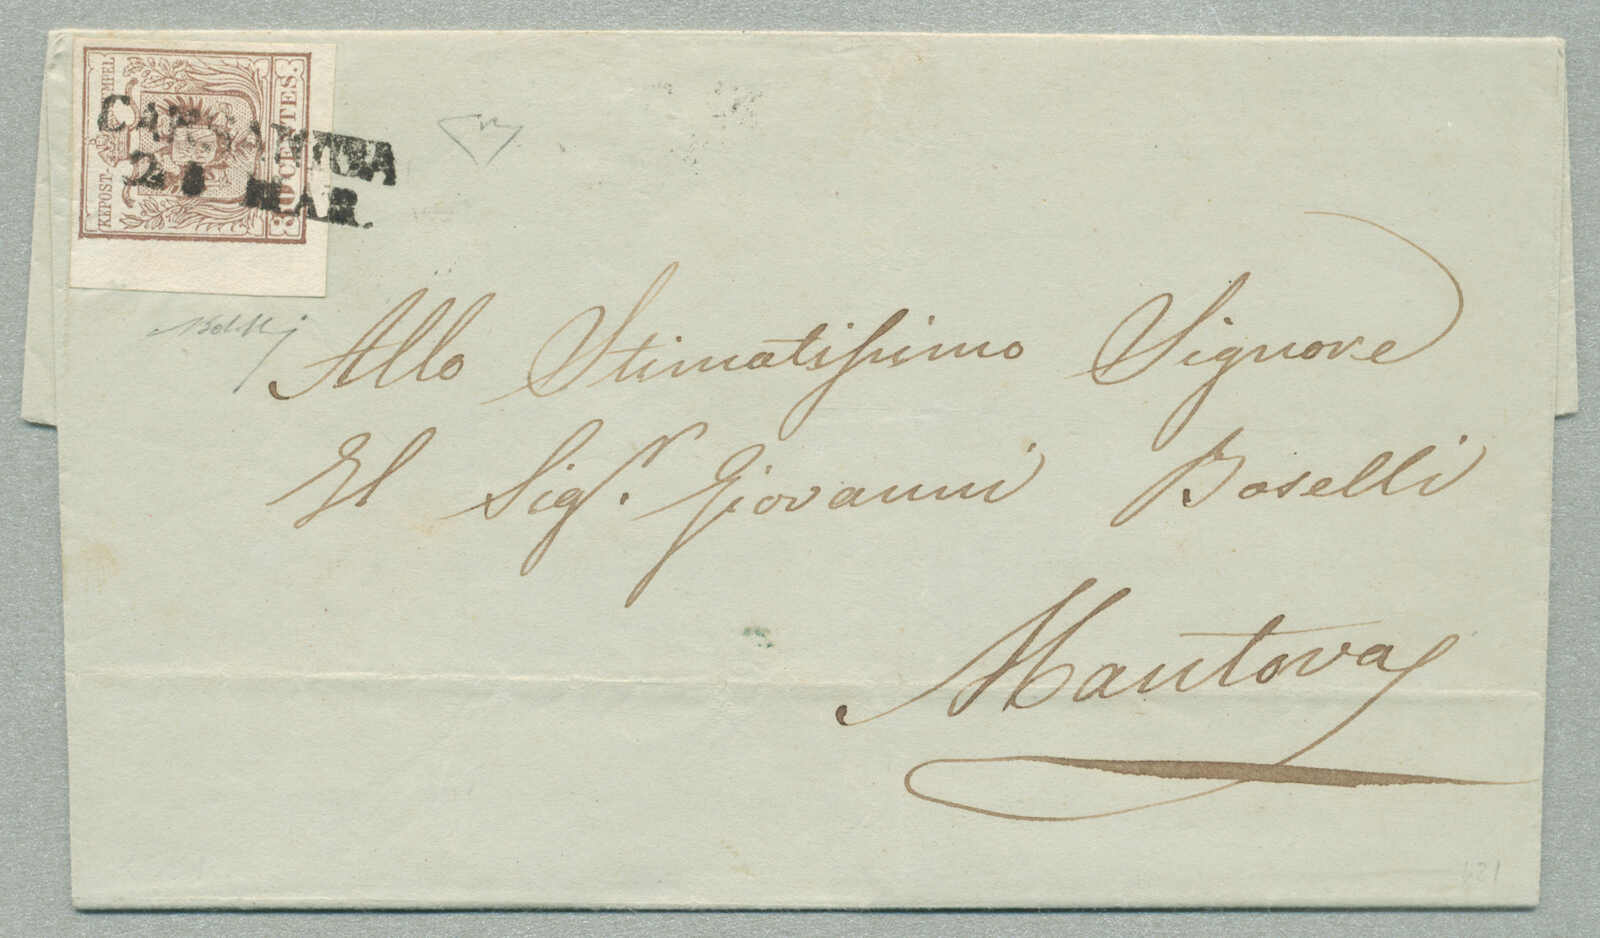 KEPOST-STEMPEL
30 CENTES.
MAR.
Allo Stimatissimo Signore
Il Sig.r Giovanni Boselli
Mantova